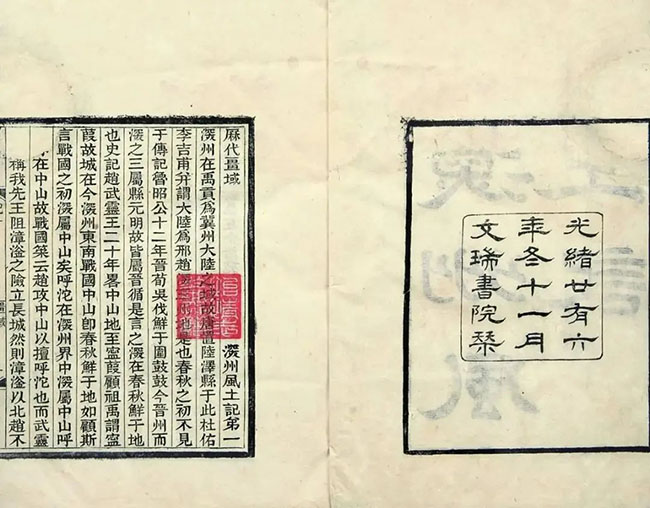 光緒廿有六
年冬十一月
文瑞書院栞
厤代畺域 㴱州風土記第一
㴱州在禹貢爲冀州大陸之域故唐置陸澤縣于此杜佑
李吉甫并謂大陸爲邢趙㴱三州地是也春秋之初不見
于傳記魯昭公十二年晉荀吳伐鮮于圍鼓鼓今晉州而
㴱之三屬縣元明故皆屬晉循是言之㴱在春秋鮮于地
也史記趙武靈王二十年畧中山地至寧葭顧祖禹謂寧
葭故城在今㴱州東南戰國中山卽春秋鮮于地如顧斯
言戰國之初㴱屬中山矣呼沱在㴱州界中㴱屬中山呼
在中山故戰國筞云趙攻中山以擅呼沱也而武靈
稱我先王阻漳滏之險立長城然則漳滏以北趙不